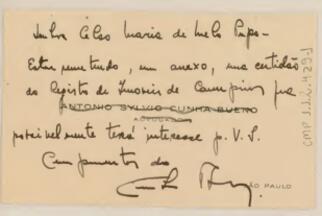 Celso Maria de Mello Pupo -
Estou remetendo, em anexo, uma certidão
do Registro de Imoveis de Campinas que
ANTONIO SYLVIO CUNHA BUENO
ADVOGADO
possivelmente terá interesse p. V. S.
Cumprimentos do
SÃO PAULO
CMP 1.1.2.4.29-1